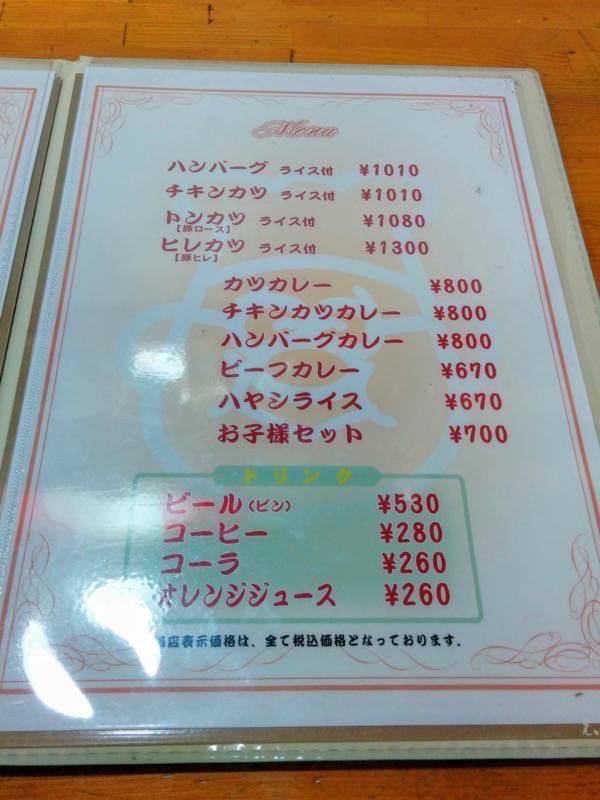 Menu
ハンバーグ ライス付 ¥1010
チキンカツ ライス付 ¥1010
トンカツ ライス付 ¥1080
【豚ロース】
ヒレカツ ライス付 ¥1300
【豚ヒレ】
カツカレー ¥800
チキンカツカレー ¥800
ハンバーグカレー ¥800
ビーフカレー ¥670
ハヤシライス ¥670
お子様セット ¥700
ドリンク
ビール(ビン) ¥530
コーヒー ¥280
コーラ ¥260
オレンジジュース ¥260
店表示価格は、全て税込価格となっております。